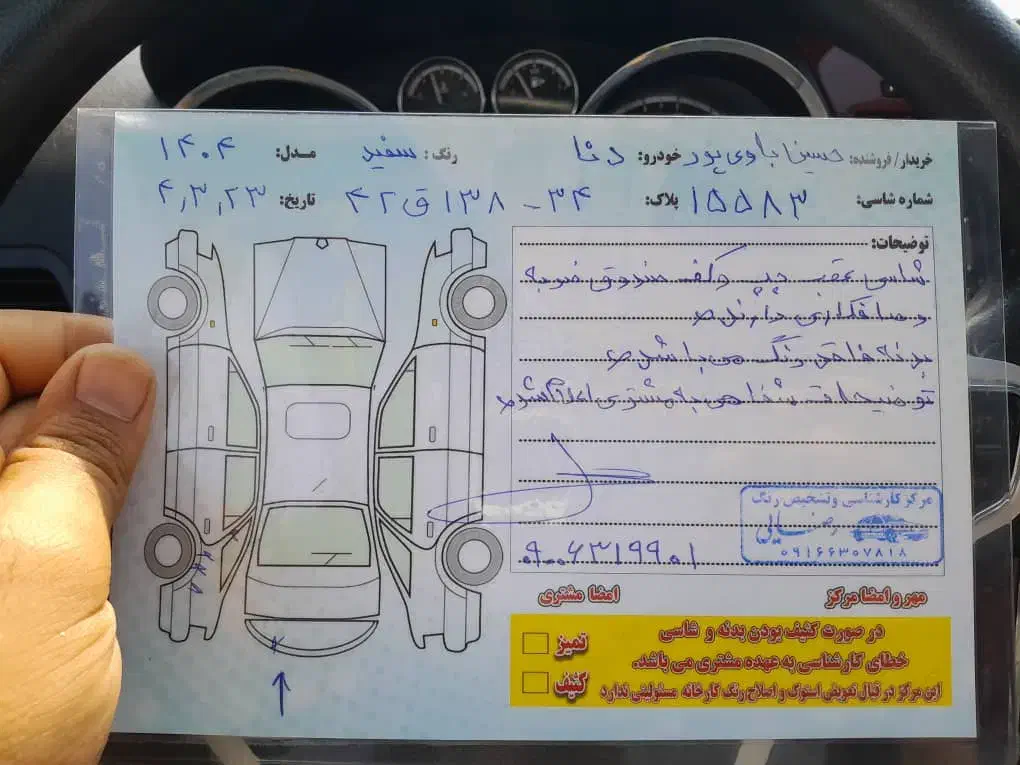 خریدار/ فروشنده: حسین باوی پور خودرو: دنا رنگ: سفید مدل: ۱۴۰۴
شماره شاسی: ۱۵۵۸۳ پلاک: ۳۴ - ۱۳۸ ق ۴۲ تاریخ: ۴,۳,۲۳
توضیحات:
شاسی عقب چپ و کف صندوق ضربه
و صافکاری دارند
بدنه فاقد رنگ می باشد
توضیحات شفاهی به مشتری اعلام شد
مرکز کارشناسی و تشخیص رنگ
۰۹۱۶۶۳۰۷۸۱۸
۰۹۰۰۶۳۱۹۹۰۱
مهر و امضا مرکز
امضا مشتری
در صورت کثیف بودن بدنه و شاسی
خطای کارشناسی به عهده مشتری می باشد.
این مرکز در قبال تعویض استوک و اصلاح رنگ کارخانه مسئولیتی ندارد
تمیز
کثیف